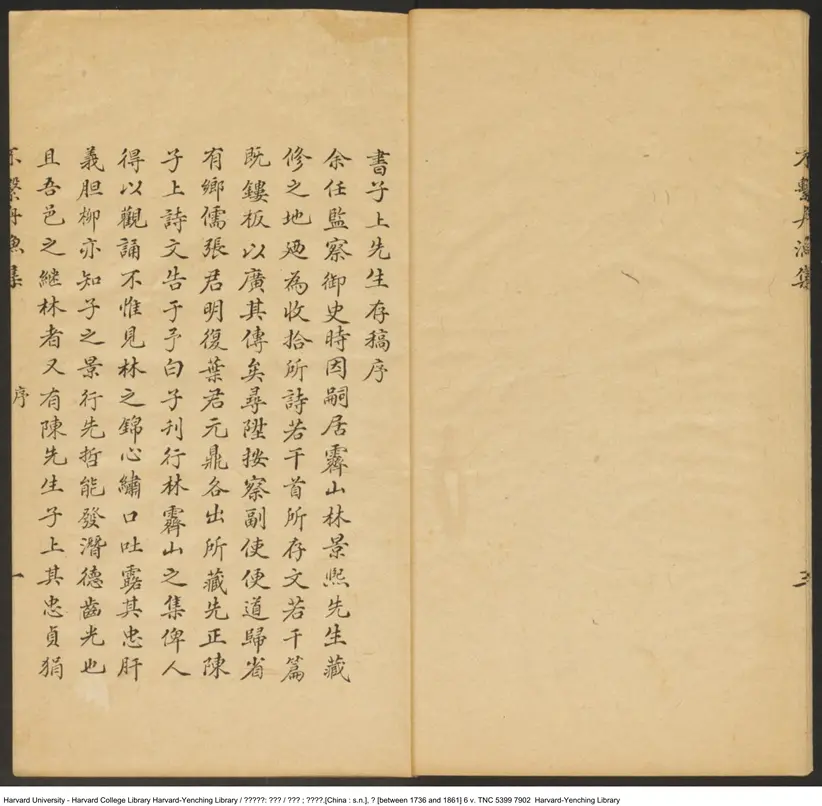 書子上先生存稿序
余任監察御史時因嗣居霽山林景熙先生藏
修之地廼為收拾所詩若干首所存文若干篇
既鏤板以廣其傳矣尋陞按察副使便道歸省
有鄉儒張君明復葉君元鼎各出所藏先正陳
子上詩文告于予曰子刊行林霽山之集俾人
得以觀誦不惟見林之錦心繡口吐露其忠肝
義胆柳亦知子之景行先哲能發潛德齒光也
且吾邑之継林者又有陳先生子上其忠貞狷
不繫舟漁集
序
一
不繫舟漁集
Harvard University - Harvard College Library Harvard-Yenching Library / ?????: ??? / ??? ; ????.[China : s.n.], ? [between 1736 and 1861] 6 v. TNC 5399 7902 Harvard-Yenching Library